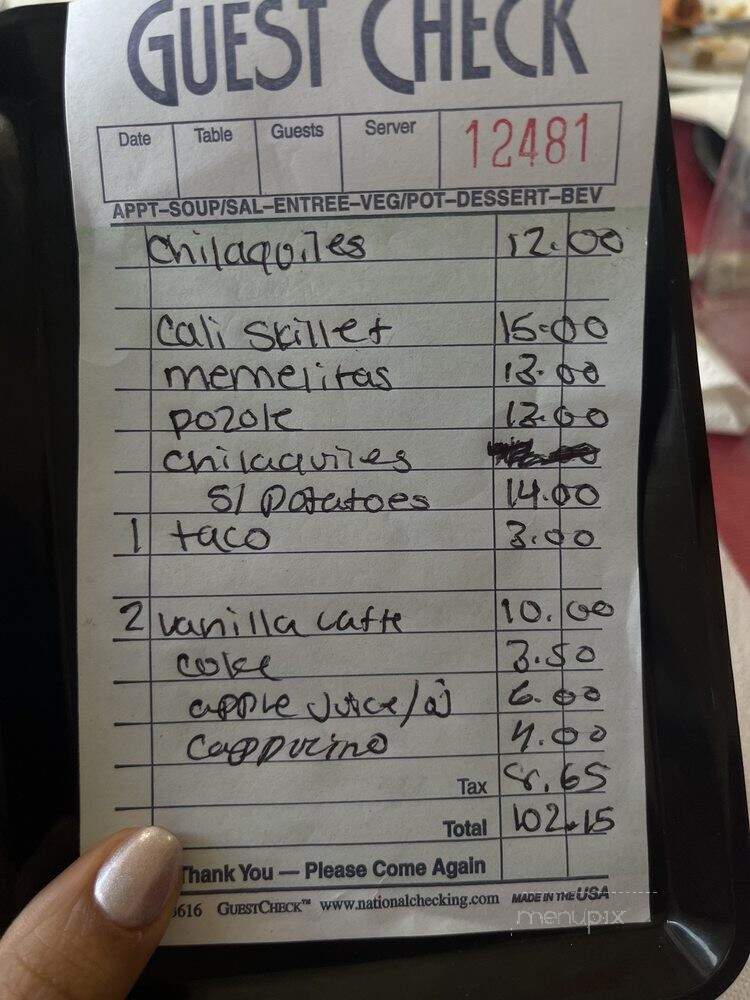 GUEST CHECK
Date Table Guests Server 12481
APPT–SOUP/SAL–ENTREE–VEG/POT–DESSERT–BEV
Chilaquiles 12.00
Cali Skillet 15.00
memelitas 13.00
pozole 13.00
chilaquiles
S/ Potatoes 14.00
1 taco 3.00
2 vanilla Latte 10.00
coke 3.50
apple Juice/OJ 6.00
Cappucino 4.00
Tax 8.65
Total 102.15
Thank You — Please Come Again
3616 GUESTCHECK™ www.nationalchecking.com MADE IN THE USA
menupix